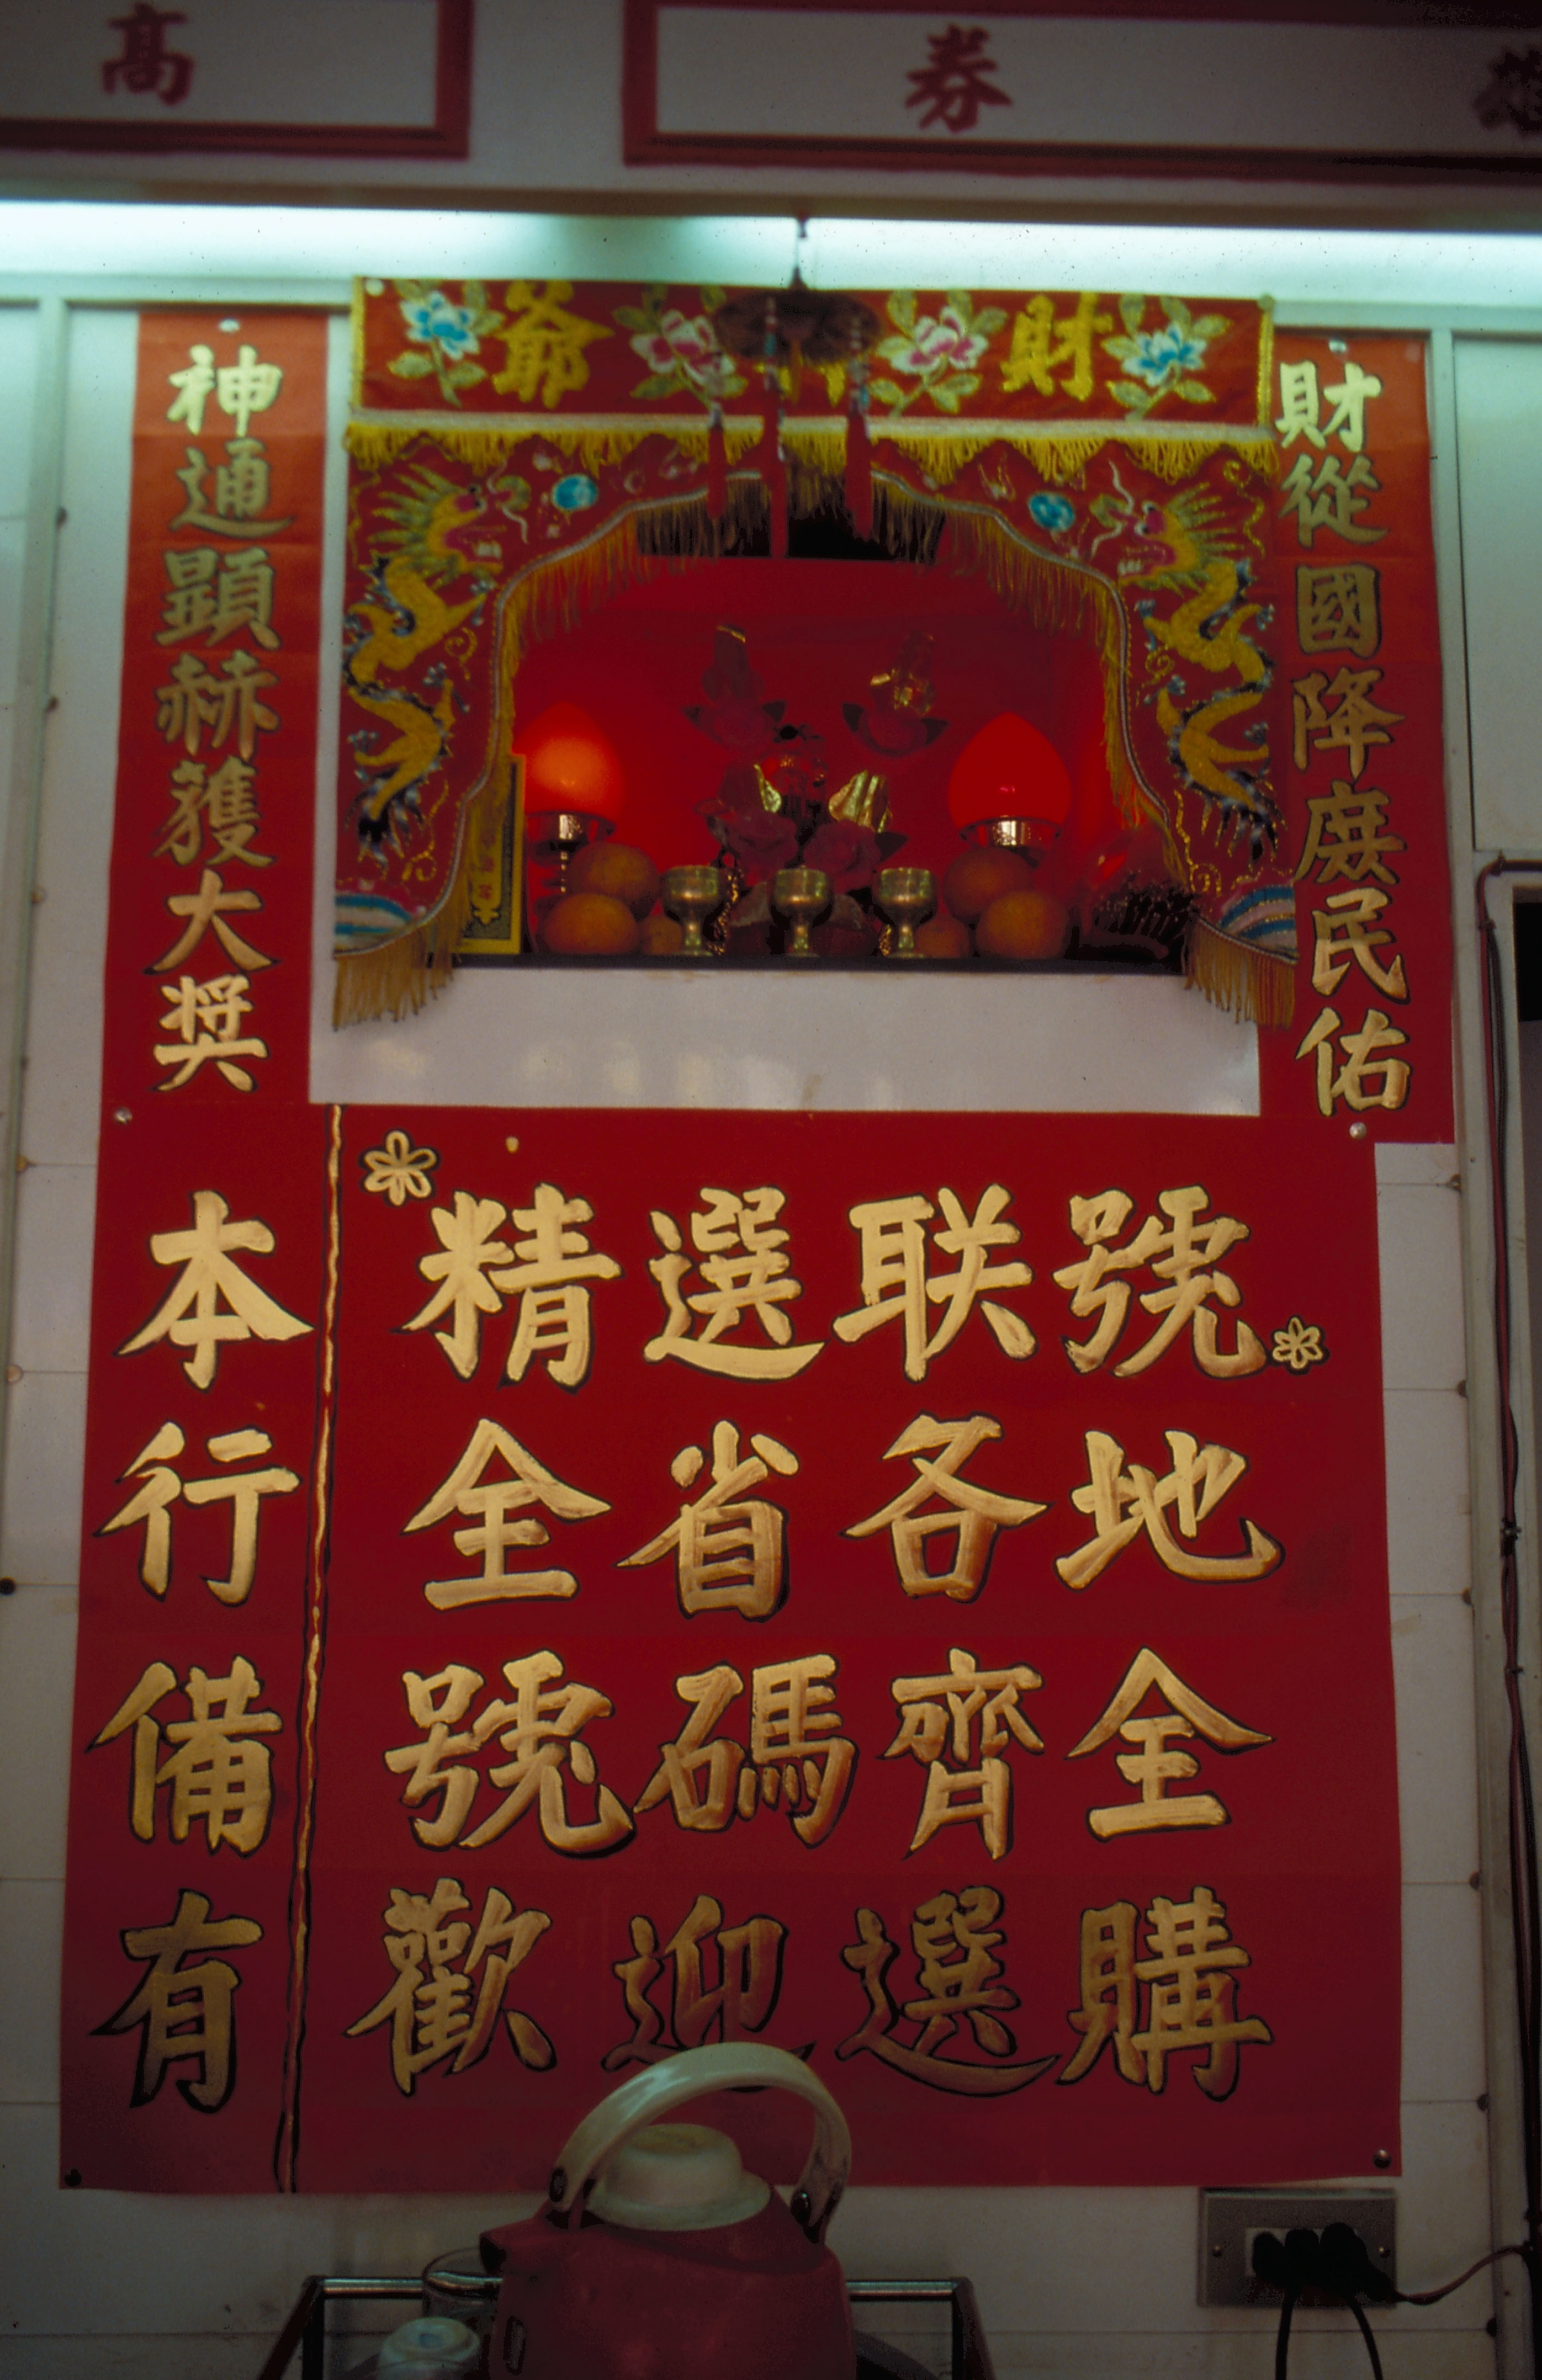 高
券
財 爺
財從國降庶民佑
神通顯赫獲大奬
本行備有
精選联號
全省各地
號碼齊全
歡迎選購